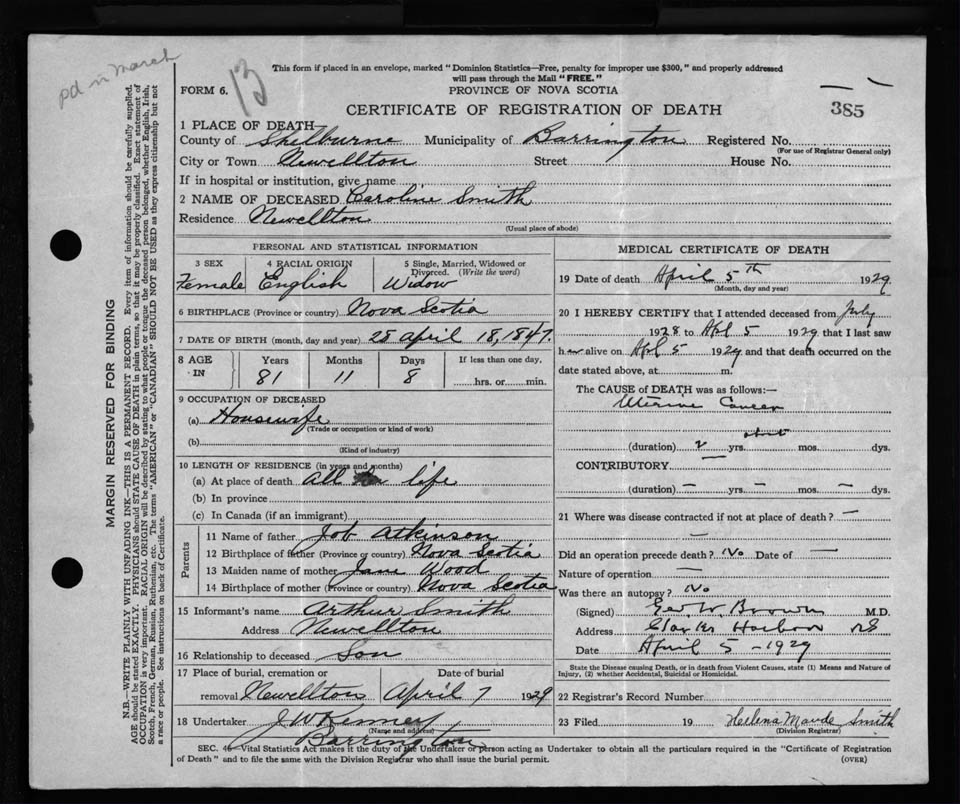 pd in march
13
This form if placed in an envelope, marked "Dominion Statistics—Free, penalty for improper use $300," and properly addressed
will pass through the Mail "FREE."
FORM 6.
PROVINCE OF NOVA SCOTIA
CERTIFICATE OF REGISTRATION OF DEATH
385
1 PLACE OF DEATH—
County of Shelburne Municipality of Barrington Registered No.
(For use of Registrar General only)
City or Town Newellton Street House No.
If in hospital or institution, give name
2 NAME OF DECEASED Caroline Smith
Residence Newellton
(Usual place of abode)
PERSONAL AND STATISTICAL INFORMATION
3 SEX 4 RACIAL ORIGIN 5 Single, Married, Widowed or
Divorced. (Write the word)
Female English Widow
6 BIRTHPLACE (Province or country) Nova Scotia
7 DATE OF BIRTH (month, day and year) 28 April 18, 1847.
8 AGE IN Years Months Days If less than one day,
81 11 8 hrs. or min.
9 OCCUPATION OF DECEASED
(a) Housewife
(Trade or occupation or kind of work)
(b)
(Kind of industry)
10 LENGTH OF RESIDENCE (in years and months)
(a) At place of death all life
(b) In province
(c) In Canada (if an immigrant)
Parents
11 Name of father Job Atkinson
12 Birthplace of father (Province or country) Nova Scotia
13 Maiden name of mother Jane Wood
14 Birthplace of mother (Province or country) Nova Scotia
15 Informant's name Arthur Smith
Address Newellton
16 Relationship to deceased Son
17 Place of burial, cremation or Date of burial
removal Newellton April 7 1929
18 Undertaker J W Kenney
(Name and address)
Barrington
MEDICAL CERTIFICATE OF DEATH
19 Date of death April 5th 1929
(Month, day and year)
20 I HEREBY CERTIFY that I attended deceased from July
1928 to Apl 5 1929 that I last saw
h er alive on Apl 5 1929 and that death occurred on the
date stated above, at m.
The CAUSE of DEATH was as follows:—
Uterine Cancer
about
(duration) 2 yrs. mos. dys.
CONTRIBUTORY —
(duration) — yrs. — mos. — dys.
21 Where was disease contracted if not at place of death? —
—
Did an operation precede death? No Date of —
Nature of operation —
Was there an autopsy? No
(Signed) Geo W Brown M.D.
Address Clarks Harbour NS
Date April 5 - 1929
State the Disease causing Death, or in death from Violent Causes, state (1) Means and Nature of
Injury, (2) whether Accidental, Suicidal or Homicidal.
22 Registrar's Record Number
23 Filed 19 Hellena Maude Smith
(Division Registrar)
SEC. 46—Vital Statistics Act makes it the duty of the Undertaker or person acting as Undertaker to obtain all the particulars required in the "Certificate of Registration
of Death" and to file the same with the Division Registrar who shall issue the burial permit. (OVER)
MARGIN RESERVED FOR BINDING
N.B.—WRITE PLAINLY WITH UNFADING INK—THIS IS A PERMANENT RECORD. Every item of information should be carefully supplied.
AGE should be stated EXACTLY. PHYSICIANS should STATE CAUSE OF DEATH in plain terms, so that it may be properly classified. Exact statement of
OCCUPATION is very important. RACIAL ORIGIN will be described by stating to what people or tongue the deceased person belonged, whether English, Irish,
Scotch, French, German, Russian, Ruthenian, etc. The terms "AMERICAN" or "CANADIAN" SHOULD NOT BE USED as they express citizenship but not
a race or people. See instructions on back of Certificate.